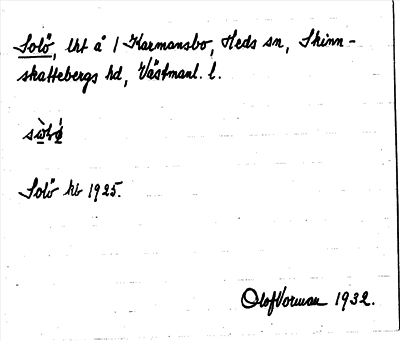 Solö, lht å 1 Karmansbo, Heds sn, Skinn-
skattebergs hd, Västmanl. l.
Solö hb 1925.
Olof Vorman 1932.